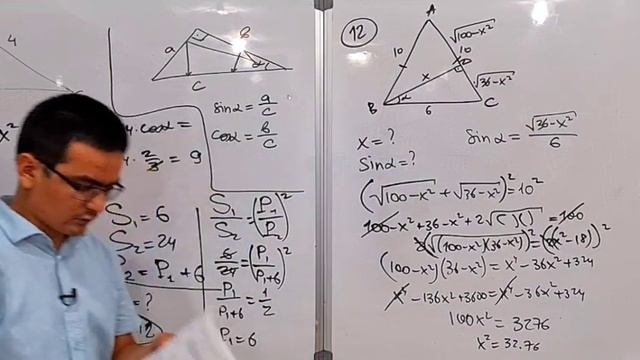 4
a
b
α
c
sinα = a/c
cosα = b/c
cosα =
= 9
S₁ = 6
S₂ = 24
P₁ + 6
= ?
S₁/S₂ = (P₁/P₂)²
6/24 = (P₁/(P₁+6))²
P₁/(P₁+6) = 1/2
P₁ = 6
12
A
√(100-x²)
10
10
x
√(36-x²)
B
α
6
C
x = ?
sinα = √(36-x²)/6
Sinα = ?
(√(100-x²) + √(36-x²))² = 10²
100-x²+36-x²+2√( )( ) = 100
(√((100-x²)(36-x²)))² = ((x²-18))²
(100-x²)(36-x²) = x⁴-36x²+324
x⁴-136x²+3600 = x⁴-36x²+324
100x² = 3276
x² = 32.76